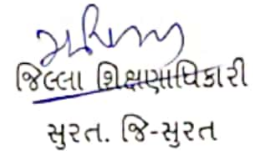 જિલ્લા શિક્ષણાધિકારી
સુરત. જિ-સુરત